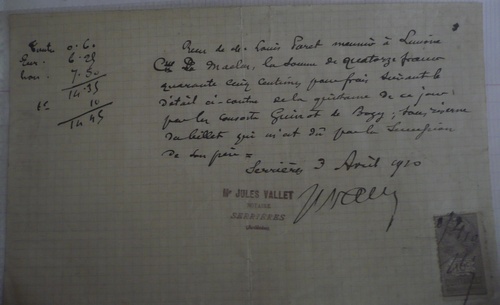 Timbre 0.60
Enr 6.25
hon 7.50
14.35
10
14.45
Reçu de M. Louis Paret meunier à Limone
Cne De Maclas, la somme de quatorze francs
quarante cinq centimes pour frais suivant le
détail ci-contre de la quittance de ce jour
par les consorts de Bogy, sous réserve
du billet qui m'est dû par la Succession
de son père =
Serrières 3 Août 1920
Me JULES VALLET
NOTAIRE
SERRIÈRES
JVallet